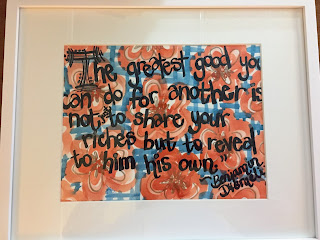 "The greatest good you
can do for another is
not to share your
riches but to reveal
to him his own."
~Benjamin
Disraeli